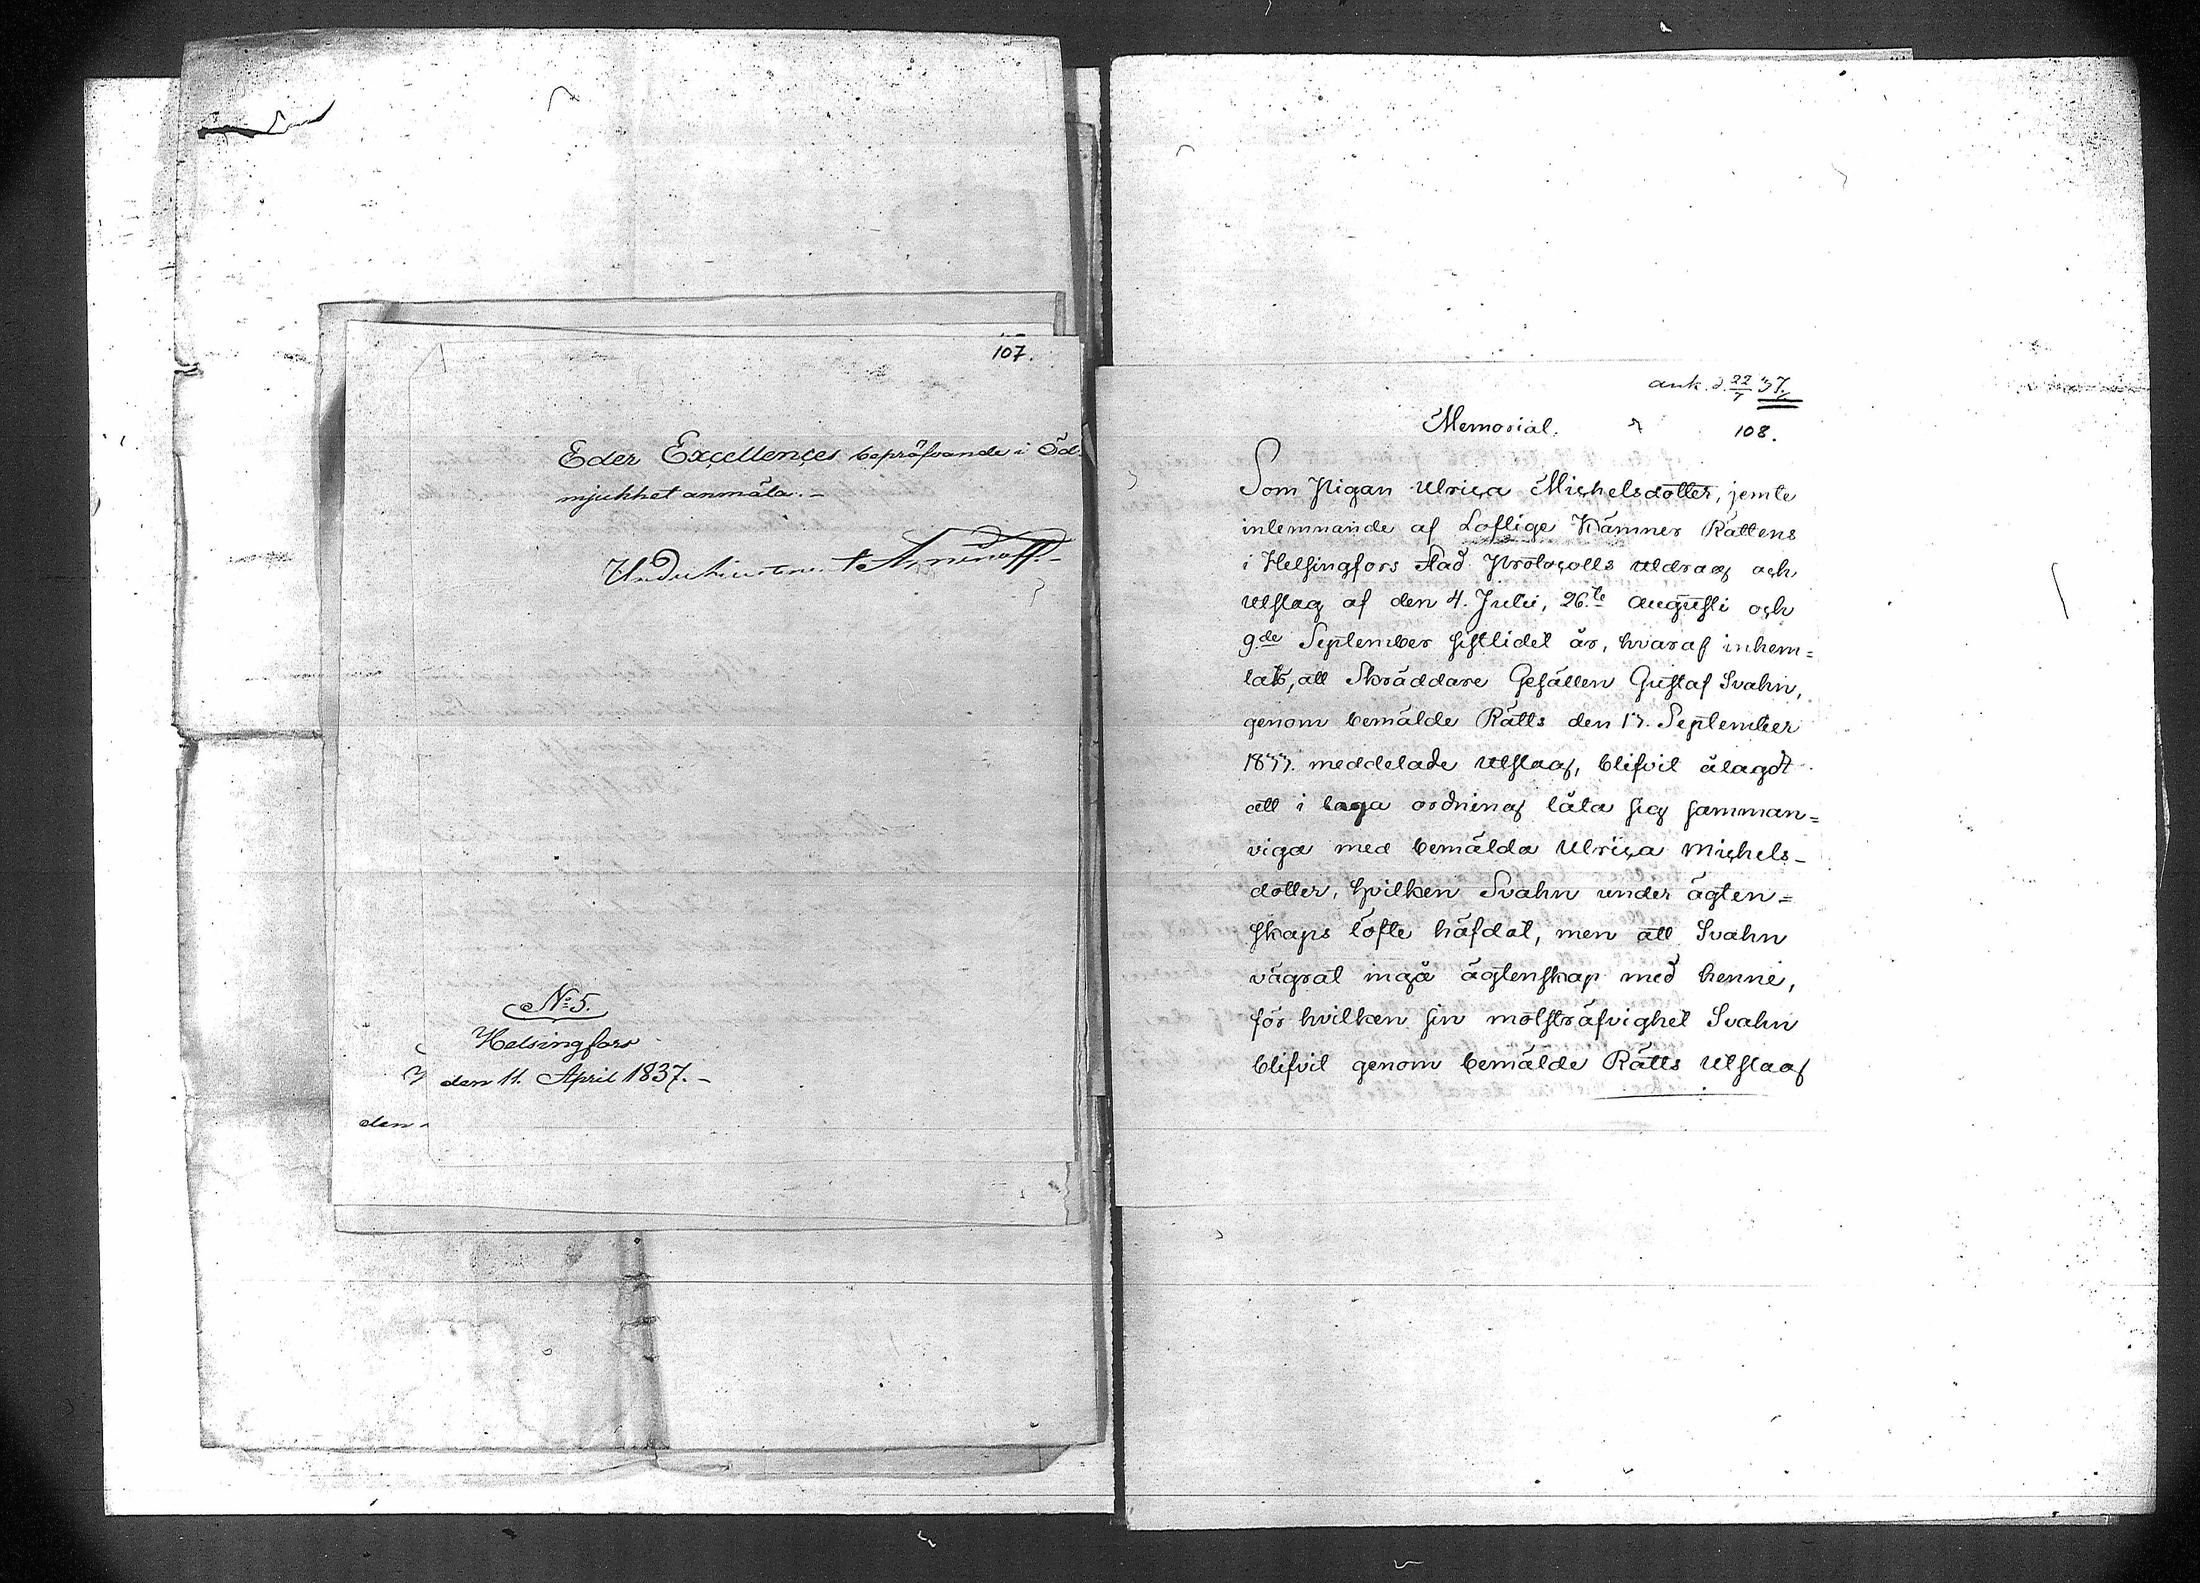 107.
Eder Excellences bepröfvande i Öd-
mjukhet anmäla. –
N:o 5.
Helsingfors
den 11. April 1837. –
den
ank. d. 22/7 37.
Memorial.
108.
Som Pigan Ulrica Michelsdotter, jemte
inlemnande af Loflige Kämner Rättens
i Helsingfors Stad Protocolls Utdrag och
Utslag af den 4. Julii, 26.te Augusti och
9.de September sistlidet år, hvaraf inhem=
tats, att Skräddare Gesällen Gustaf Svahn,
genom bemälde Rätts den September
meddelade Utslag, blifvit ålagdt
att i laga ordning låta sig samman=
viga med bemälda Ulrica Michels-
dotter, hvilken Svahn under ägten=
skaps löfte häfdat, men att Svahn
vägrat ingå ägtenskap med henne,
för hvilken sin motsträfvighet Svahn
blifvit genom bemälde Rätts Utslag